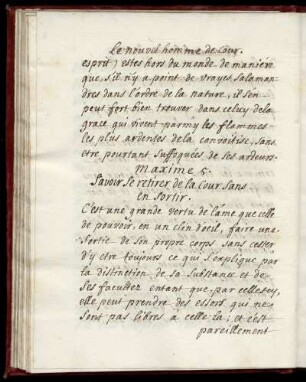 Le nouvel homme de Cour.
esprit) estes hors du monde de maniere
que, s'il n'y a point de vrayes Salaman
dres dans l'ordre de la nature, il s'en
peut fort bien trouver dans celuy de la
grace qui vivent parmy les flammes
les plus ardentes de la convoitise, sans
être pourtant Suffoquées de ses ardeurs.
Maxime 5.
Savoir se retirer de la Cour sans
en Sortir.
C'est une grande vertu de l'ame que celle
de pouvoir, en un clin d'oeil, faire une
Sortie de son propre corps sans cesser
d'y etre toujours ce qui s'explique par
la distinction de sa Substance et de
Ses facultez entant que par celles cy,
elle peut prendre des essors qui ne
Sont pas libres à celle la; et c'est
pareillement